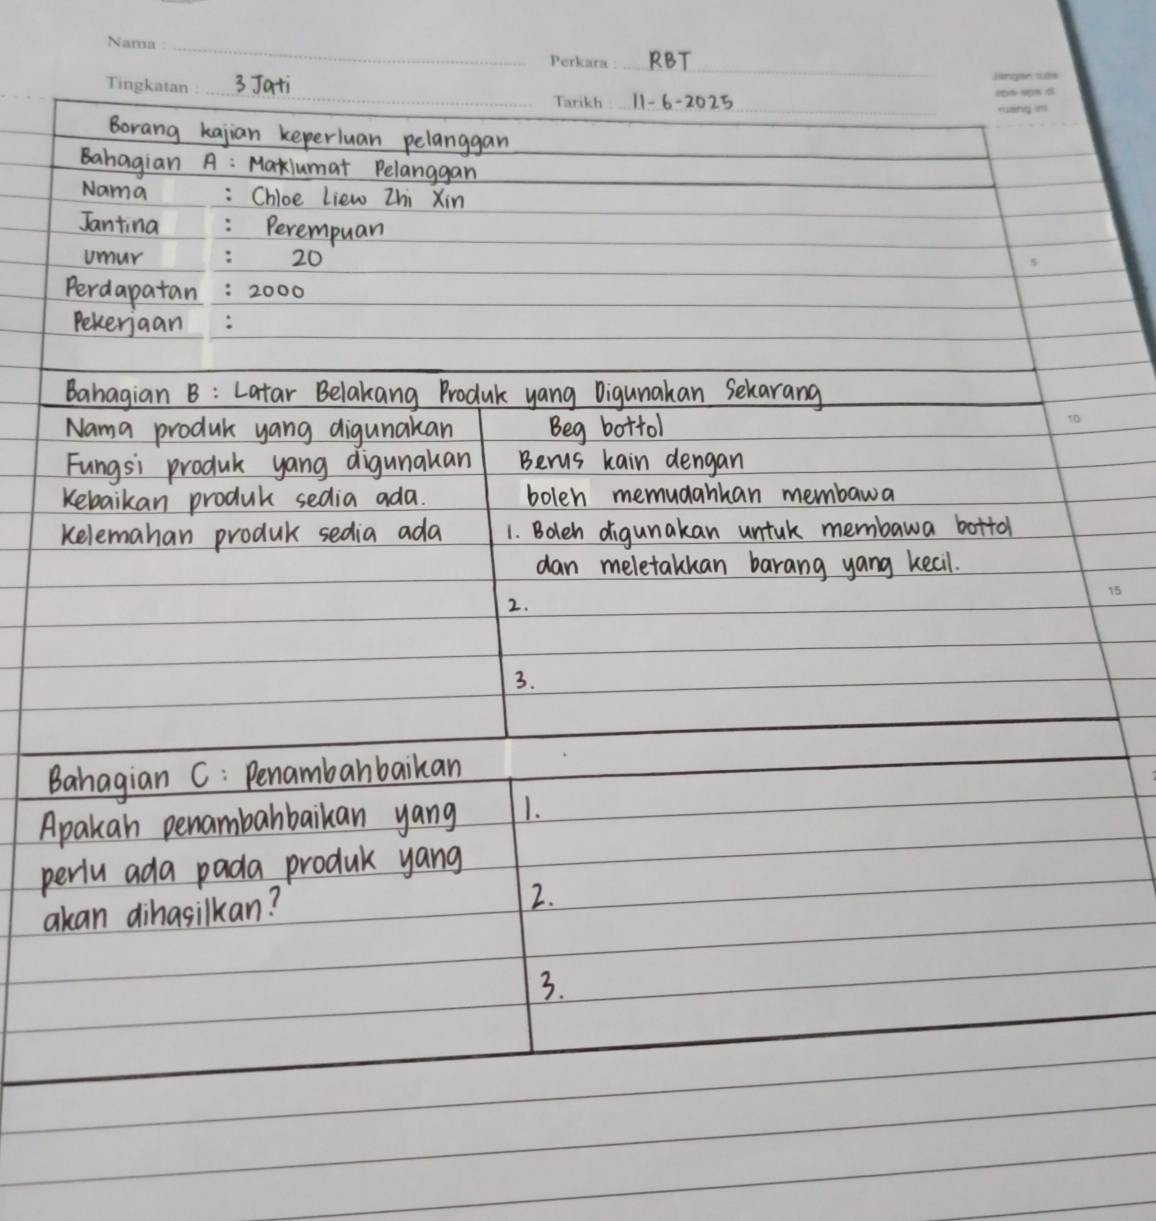 Nama :
Perkara : RBT
Jangan tulis
apa-apa di
ruang ini
Tingkatan : 3 Jati
Tarikh : 11-6-2025
Borang kajian keperluan pelanggan
Bahagian A : Maklumat Pelanggan
Nama : Chloe Liew Zhi Xin
Jantina : Perempuan
umur : 20
5
Perdapatan : 2000
Pekerjaan :
Bahagian B : Latar Belakang Produk yang Digunakan Sekarang
Nama produk yang digunakan Beg bottol
10
Fungsi produk yang digunakan Berus kain dengan
Kebaikan produk sedia ada. boleh memudahkan membawa
Kelemahan produk sedia ada 1. Boleh digunakan untuk membawa bottol
dan meletakkan barang yang kecil.
15
2.
3.
Bahagian C : Penambahbaikan
Apakah penambahbaikan yang 1.
perlu ada pada produk yang
akan dihasilkan? 2.
3.